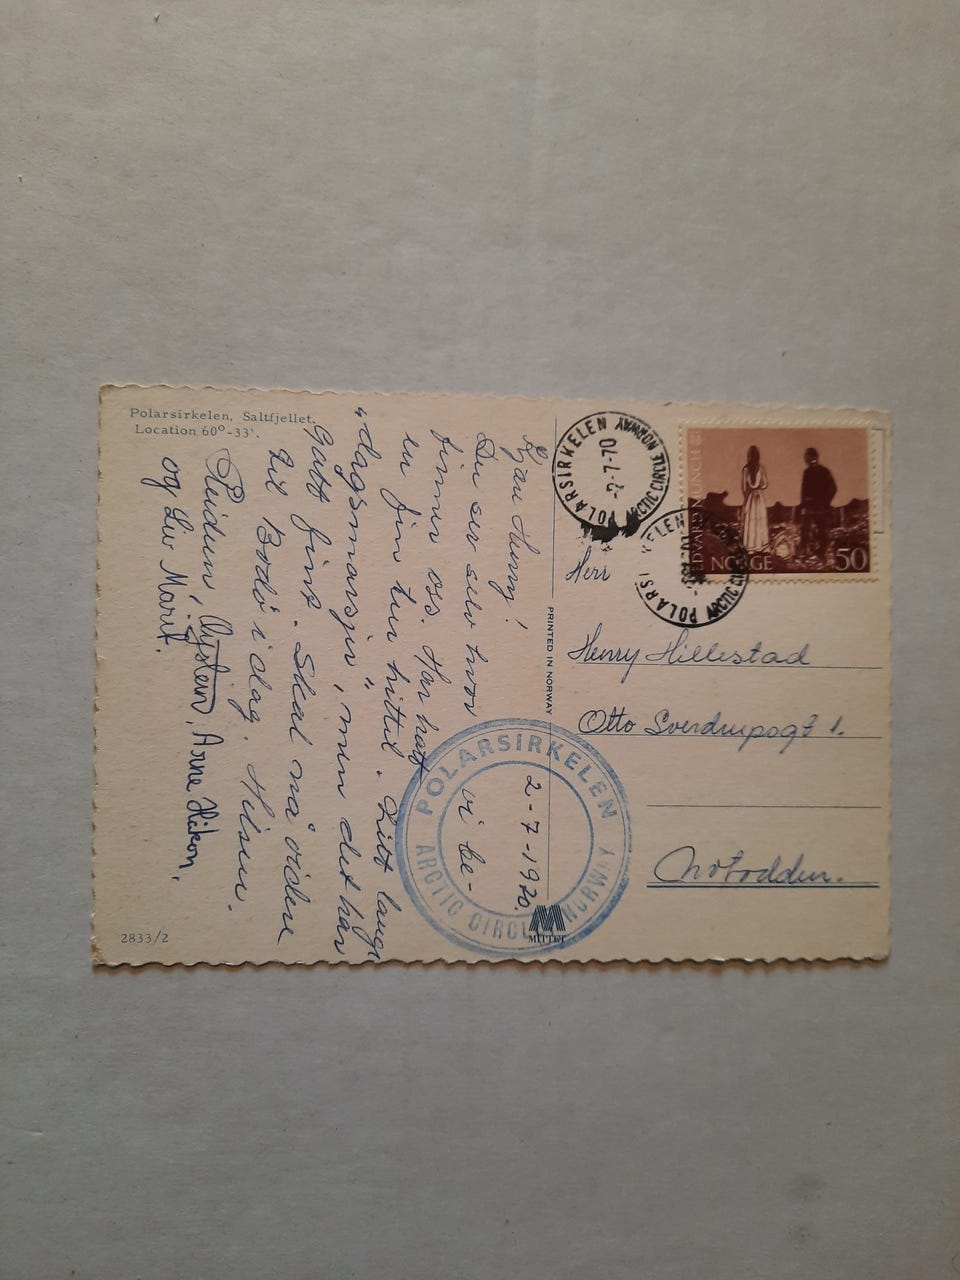 Polarsirkelen, Saltfjellet.
Location 60°-33'.
2-7-1970.
Kjære Henry!
Du ser selv hvor vi be-
finner oss. Har hatt
en fin tur hittil. Litt lange
"dagsmarsjer", men det har
gått fint. Skal nå videre
til Bodø i dag. Hilsen.
Reidun, Øystein, Arne Håkon,
og Liv Marit.
2833/2
PRINTED IN NORWAY
MITTET
POLARSIRKELEN
ARCTIC CIRCLE NORWAY
POLARSIRKELEN
-2-7-70
ARCTIC CIRCLE NORWAY
POLARSIRKELEN
ARCTIC
EDVARD MUNCH
NORGE 50
Herr
Henry Hillestad
Otto Sverdrupsgt 1.
Notodden.